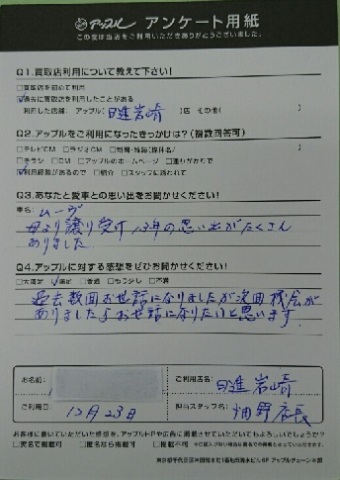 アップル アンケート用紙
この度は当店をご利用いただきありがとうございました。
Q1.買取店利用について教えて下さい!
□買取店を初めて利用
☑過去に買取店を利用したことがある
利用した店舗 アップル[ 日進岩崎 ]店 その他( )
Q2.アップルをご利用になったきっかけは?(複数回答可)
□テレビCM □ラジオCM
□チラシ □アップルのホームページ □通りがかりで
☑利用経験があるので □紹介 □スタッフに誘われて
Q3.あなたと愛車との思い出をお聞かせください!
車名: ムーヴ
母より譲り受け 13年の思い出がたくさん
ありました
Q4.アップルに対する感想をぜひお聞かせください!
□大満足 ☑満足 □普通 □もう少し □不満
過去数回お世話になりましたが次回機会が
ありましたらお世話になりたいと思います
お名前:
ご利用店名: 日進岩崎
ご利用日: 12月23日
担当スタッフ名: 畑野店長
お客様に書いていただいた感想を、アップルHPや広告に掲載させていただいてもよろしいでしょうか?
□実名で掲載可 □匿名なら掲載可 □掲載不可